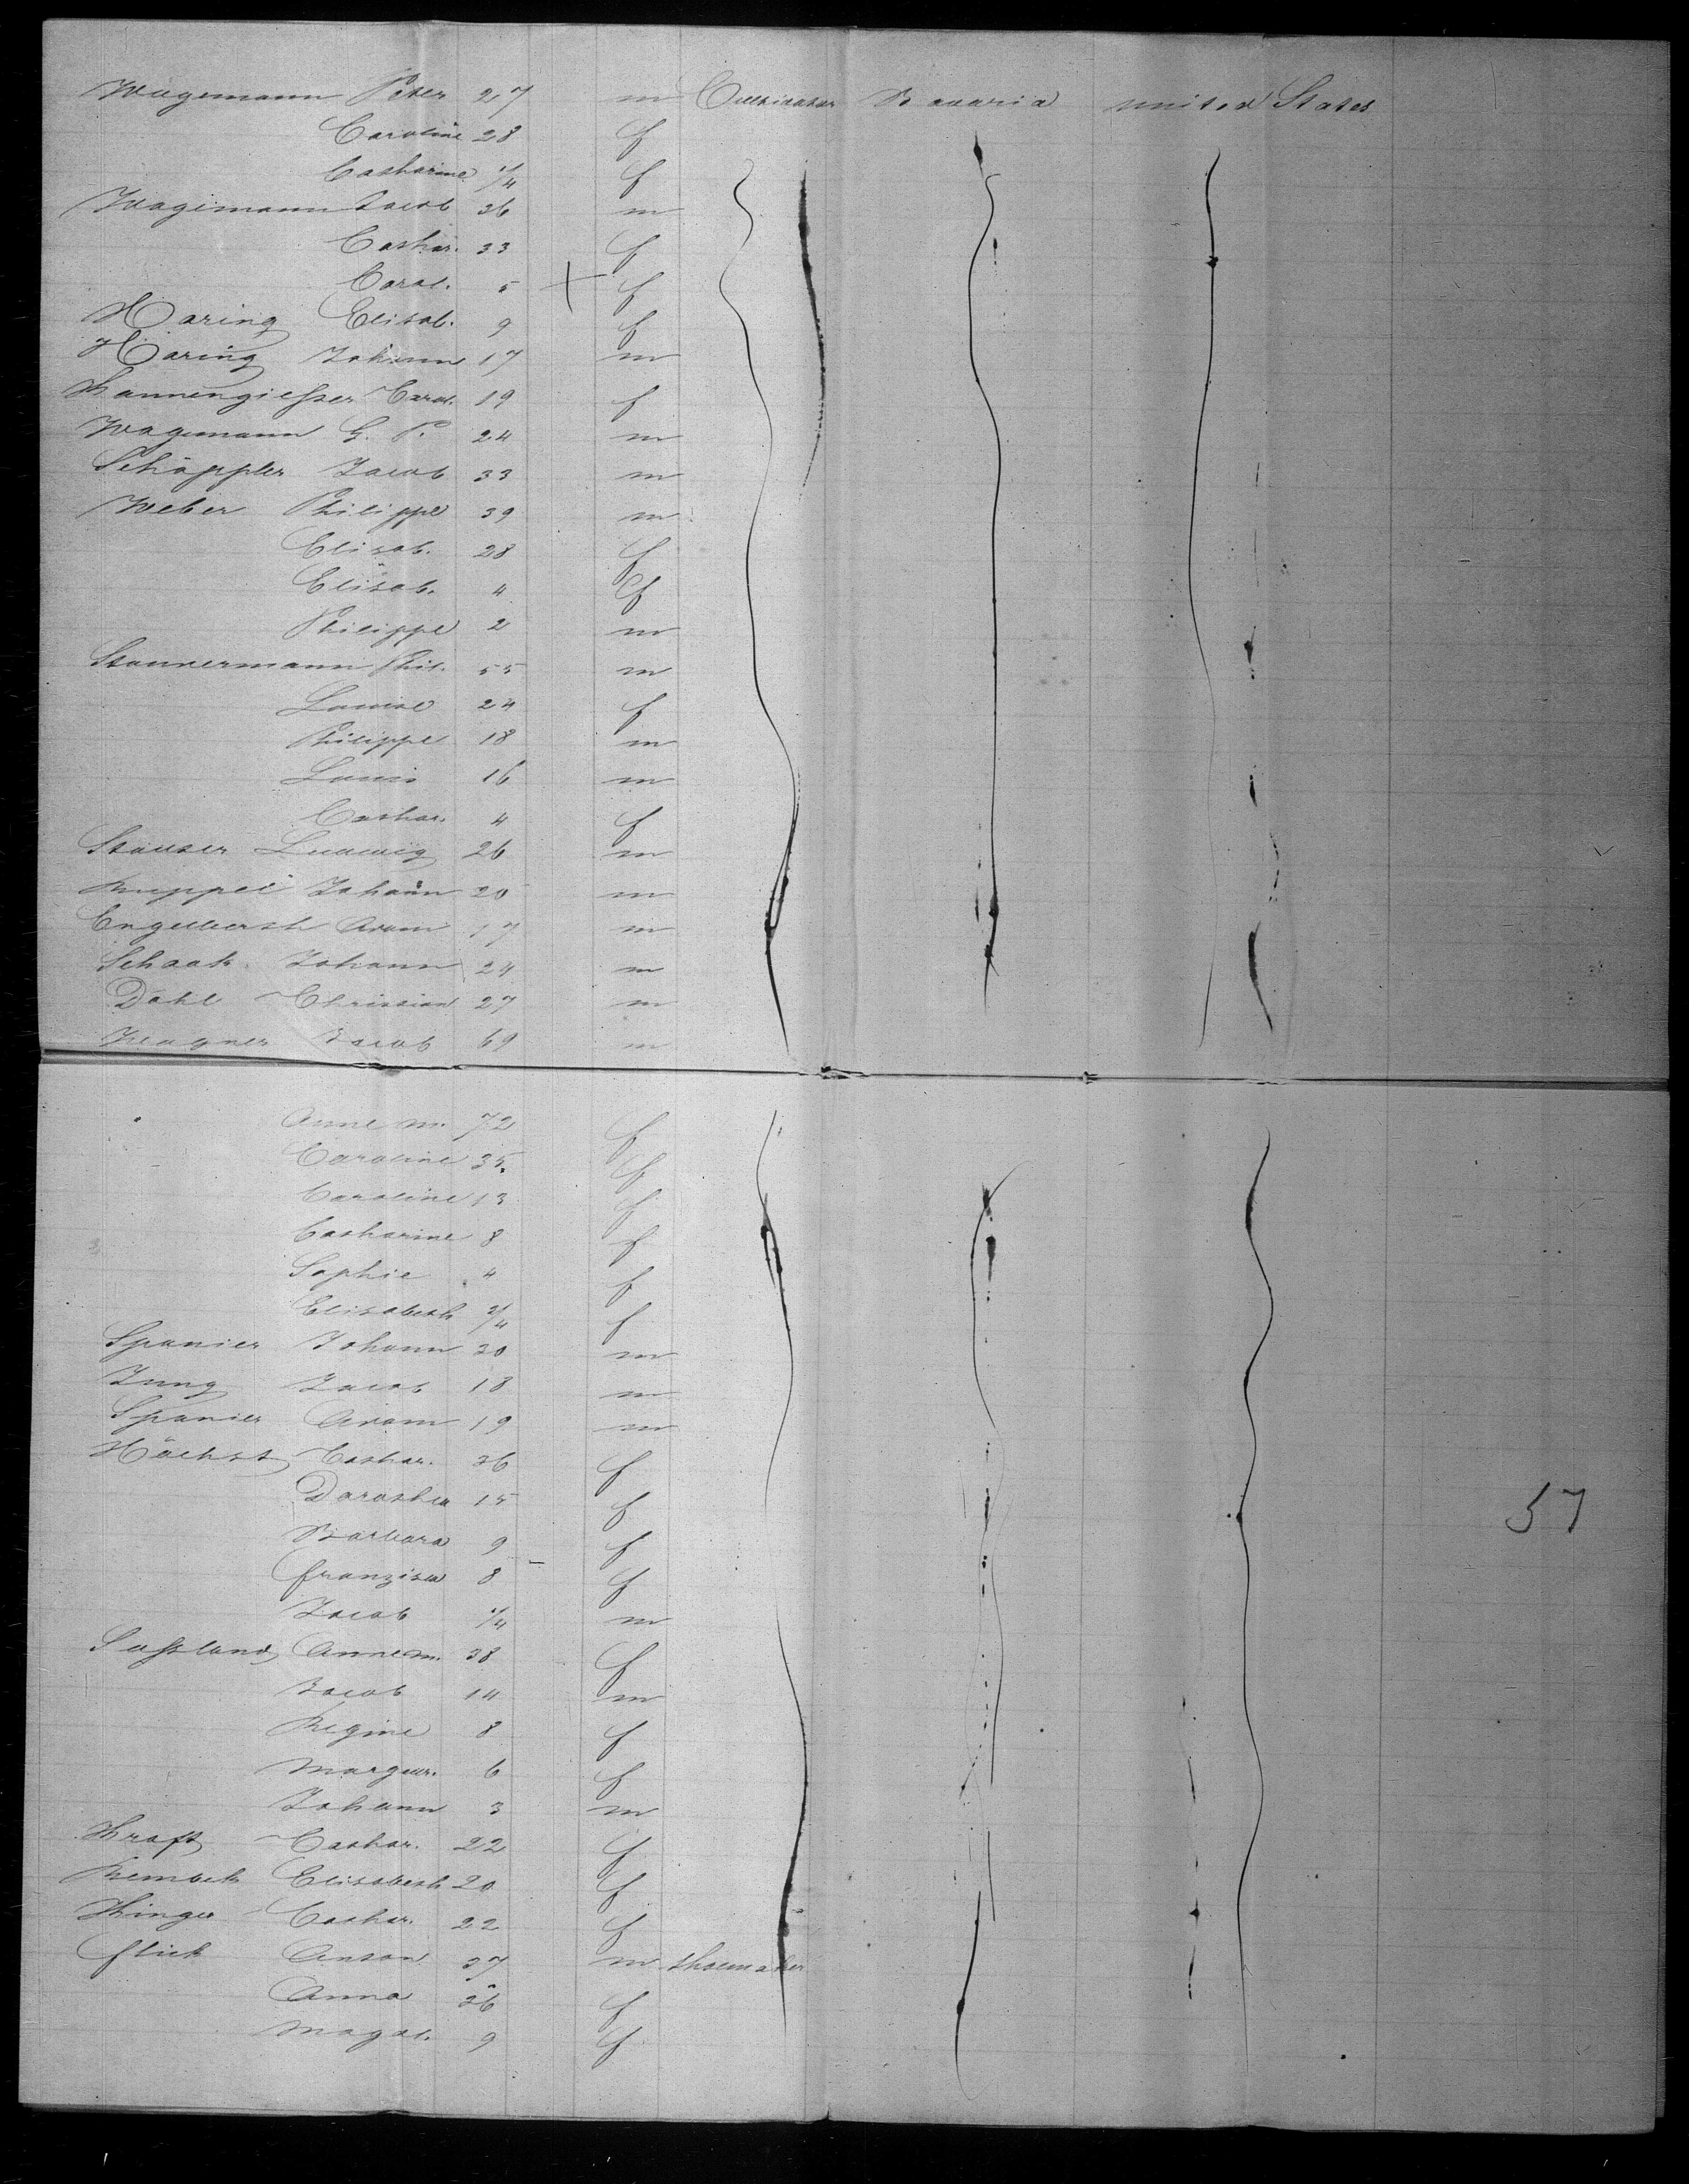 Wagemann Peter 27 m Cultivator Bavaria united States
Caroline 28 f
Catharine 1/4 f
Wagemann Jacob 36 m
Cathar. 33 f
Carol. 5 f
Haring Elisab. 9 f
Haring Johann 17 m
Kannengiesser Carol. 19 f
Wagemann G. P. 24 m
Schäppler Jacob 33 m
Weber Philippe 39 m
Elisab. 28 f
Elisab. 4 f
Philippe 2 m
Phil. 55 m
Louise 24 f
Philippe 18 m
Louis 16 m
Cathar. 4 f
Stauser Ludwig 26 m
Ruppel Johann 20 m
Engelberth Adam 17 m
Schaak Johann 24 m
Dahl Christian 27 m
Wagner Jacob 69 m
Anne M. 72 f
Caroline 35 f
Caroline 13 f
Catharine 8 f
Sophie 4 f
Elisabeth 3/4 f
Spanier Johann 30 m
Jung Jacob 18 m
Spanier Adam 19 m
Höchst Cathar. 36 f
Dorothea 15 f
Barbara 9 f
Franzisca 8 f
Jacob 1/4 m
Anne M. 38 f
Jacob 14 m
Regine 8 f
Margar. 6 f
Johann 3 m
Kraft Cathar. 22 f
Elisabeth 20 f
Cathar. 22 f
Flick Anton 37 m shoemaker
Anna 36 f
Magd. 9 f
57